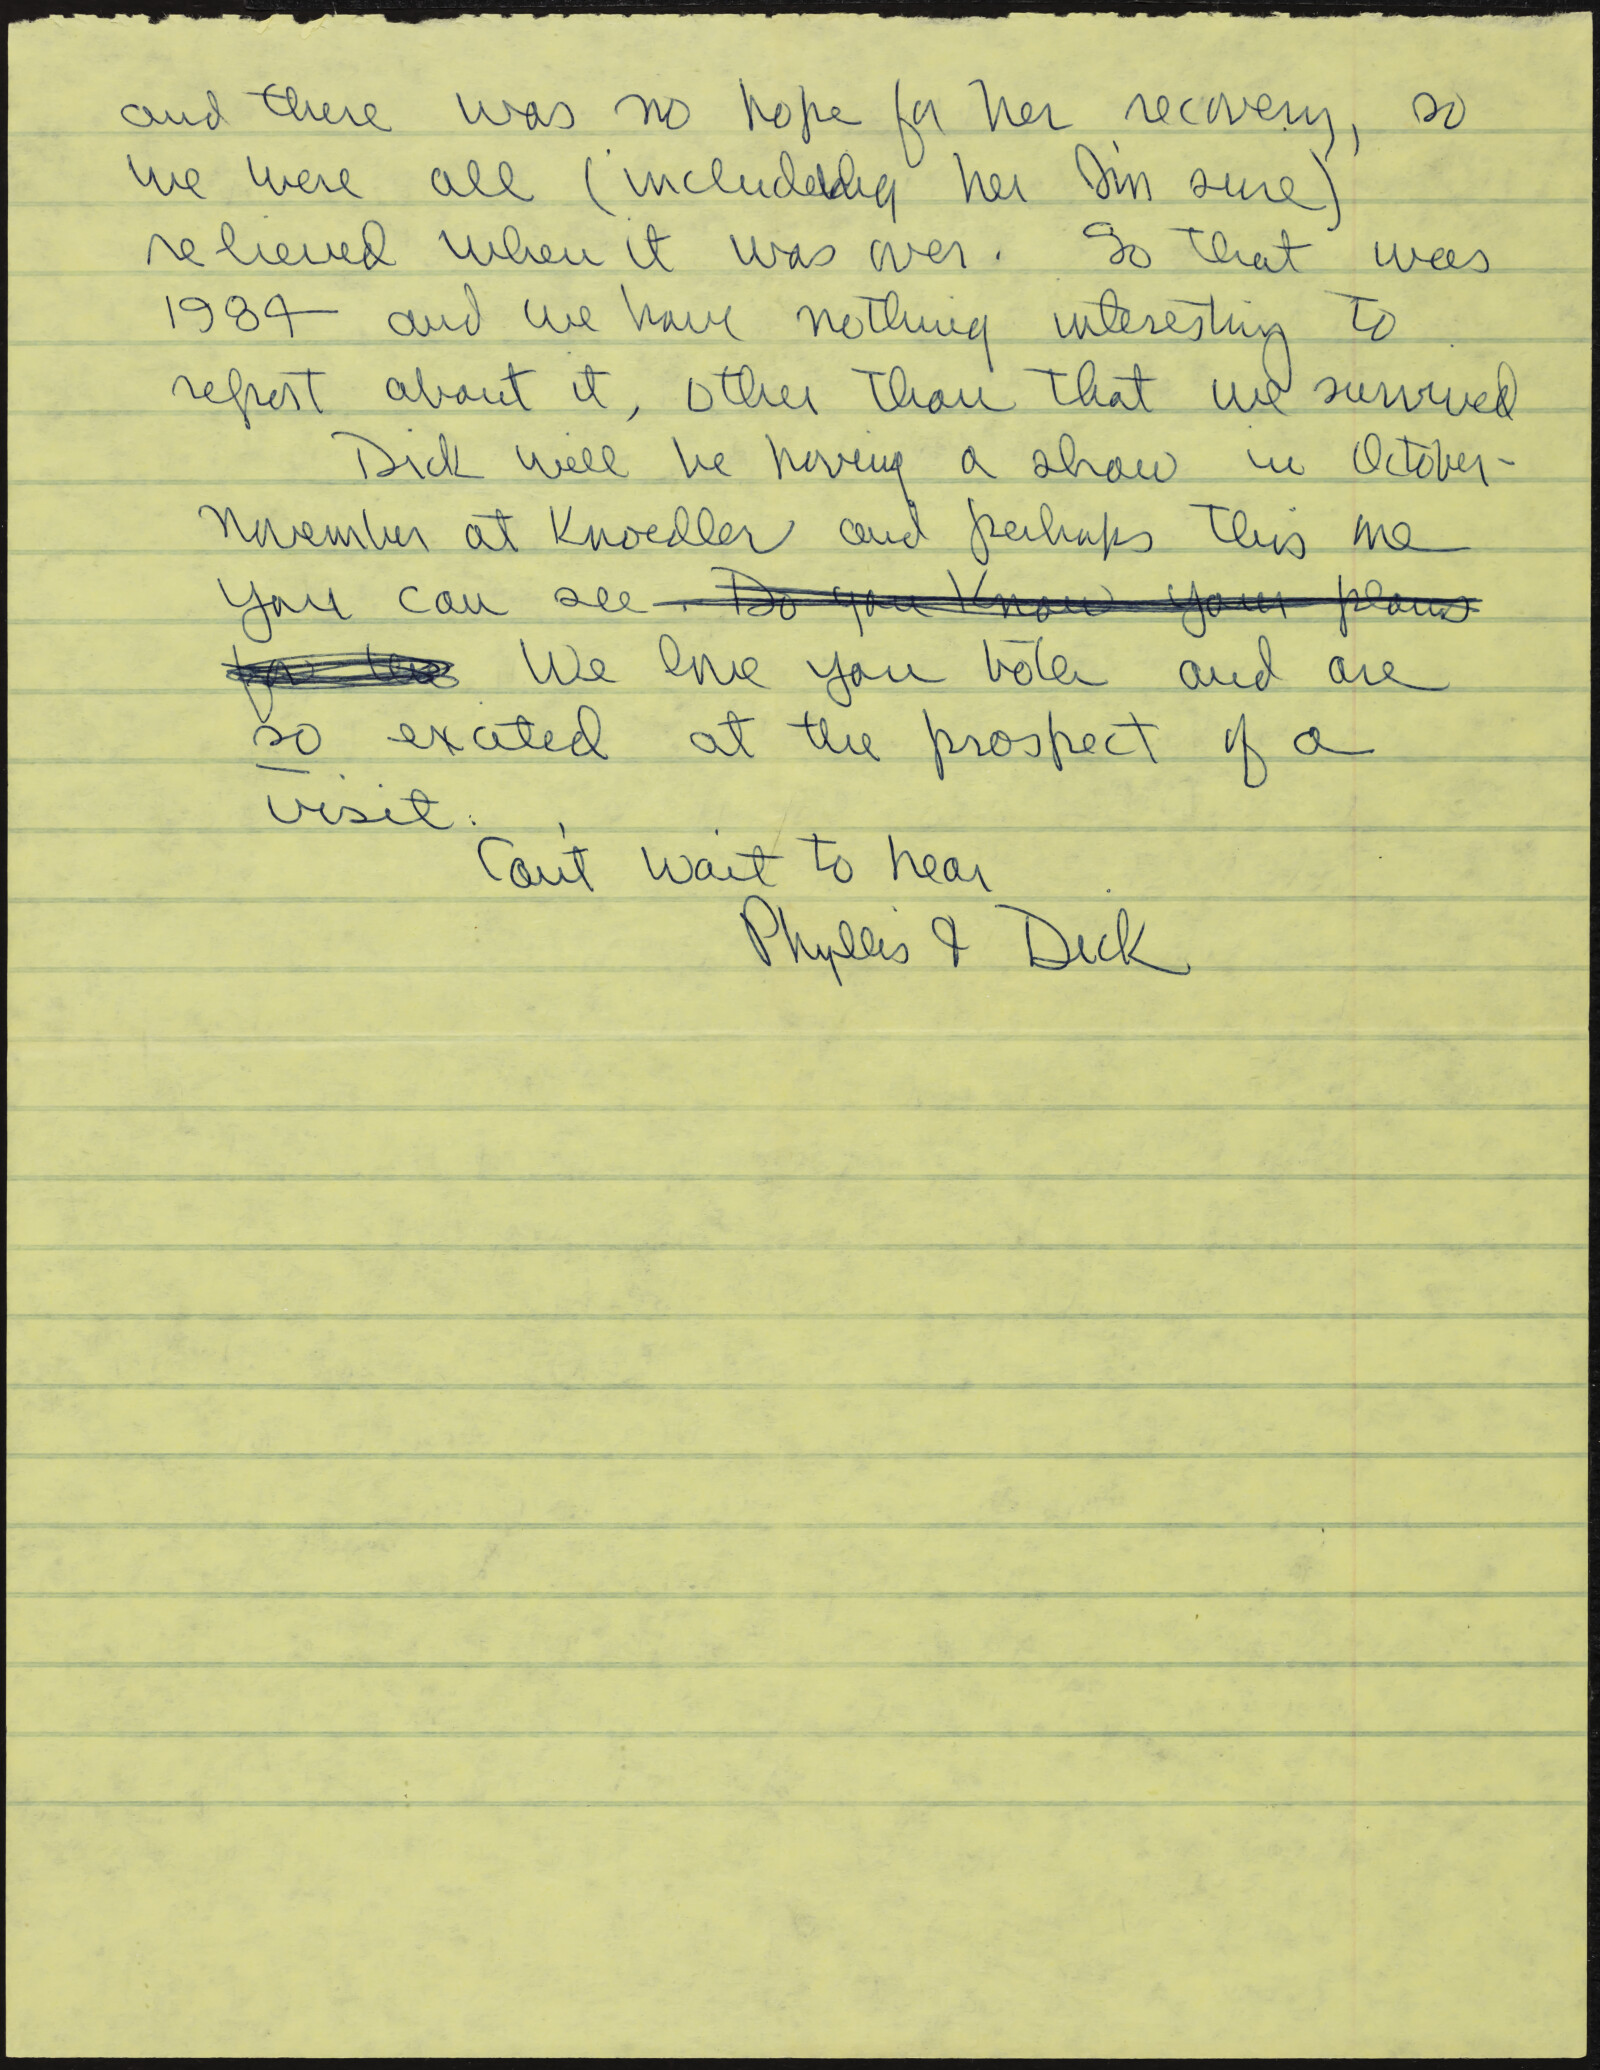 and there was no hope for her recovery, so
we were all (including her I'm sure)
relieved when it was over. So that was
1984 and we have nothing interesting to
report about it, other than that we survived
Dick will be having a show in October-
November at Knoedler and perhaps this one
you can see. Do you know your plans
for the We love you both and are
so excited at the prospect of a
visit.
Can't wait to hear
Phyllis & Dick